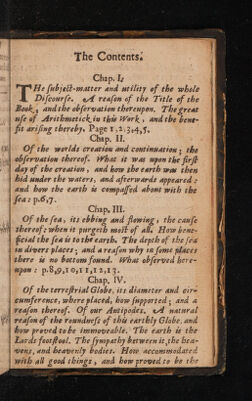 The Contents.
Chap. I.
THe subject-matter and utility of the whole
Discourse. A reason of the Title of the
Book, and the observation thereupon. The great
use of Arithmetick in this Work, and the bene-
fit arising thereby. Page 1.2.3.4,5.
Chap. II.
Of the worlds creation and continuation; the
observation thereof. What it was upon the first
day of the creation, and how the earth was then
hid under the waters, and afterwards appeared:
and how the earth is compassed about with the
sea: p.6,7.
Chap. III.
Of the sea, its ebbing and flowing; the cause
thereof: when it purgeth most of all. How bene-
ficial the sea is to the earth. The depth of the sea
in divers places; and a reason why in some places
there is no bottom found. What observed here-
upon: p.8,9,10,11,12,13.
Chap. IV.
Of the terrestrial Globe, its diameter and cir-
cumference, where placed, how supported; and a
reason thereof. Of our Antipodes. A natural
reason of the roundness of this earthly Globe, and
how proved to be immoveable. The earth is the
Lords footstool. The sympathy between it, the hea-
vens, and heavenly bodies. How accommodated
with all good things, and how proved to be the